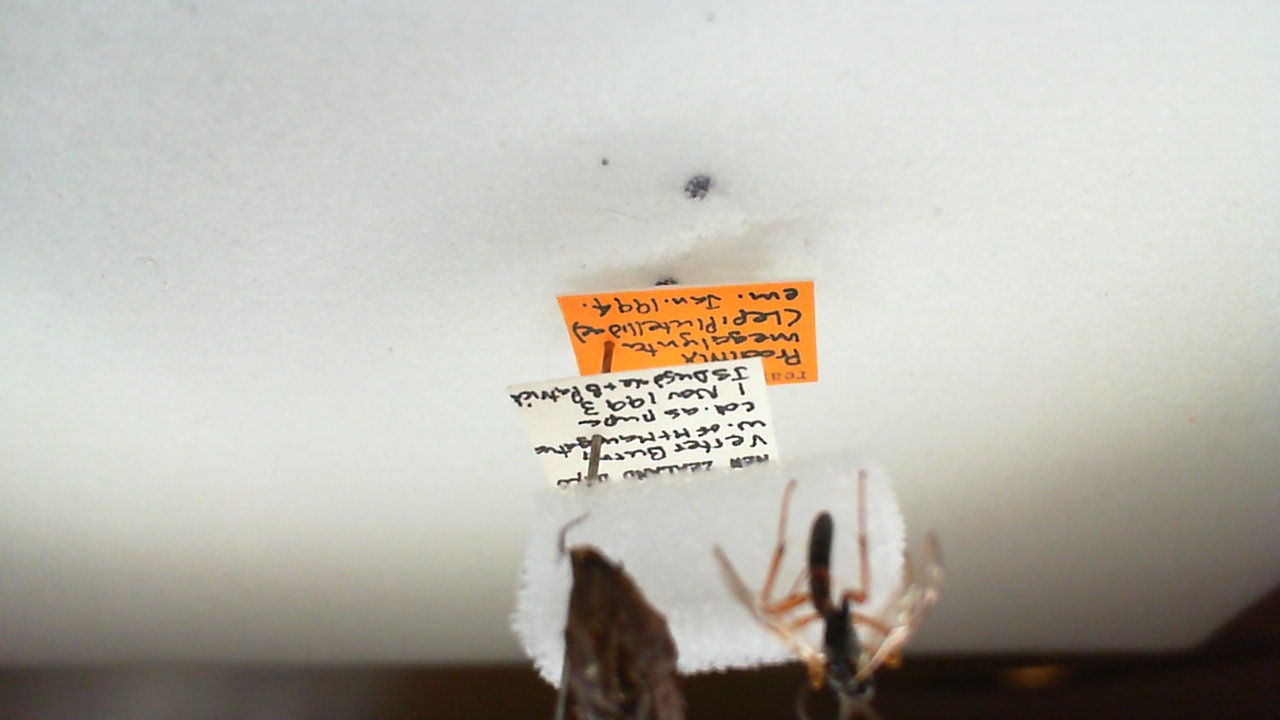 NEW ZEALAND
Verter Burn,
W. of Mt Maungatua
col. as pupa
1 Nov 1993
JS Dugdale + B Patrick
rea
Prodinx
megalynta
(Lep: Plutellidae)
em. Jan. 1994.